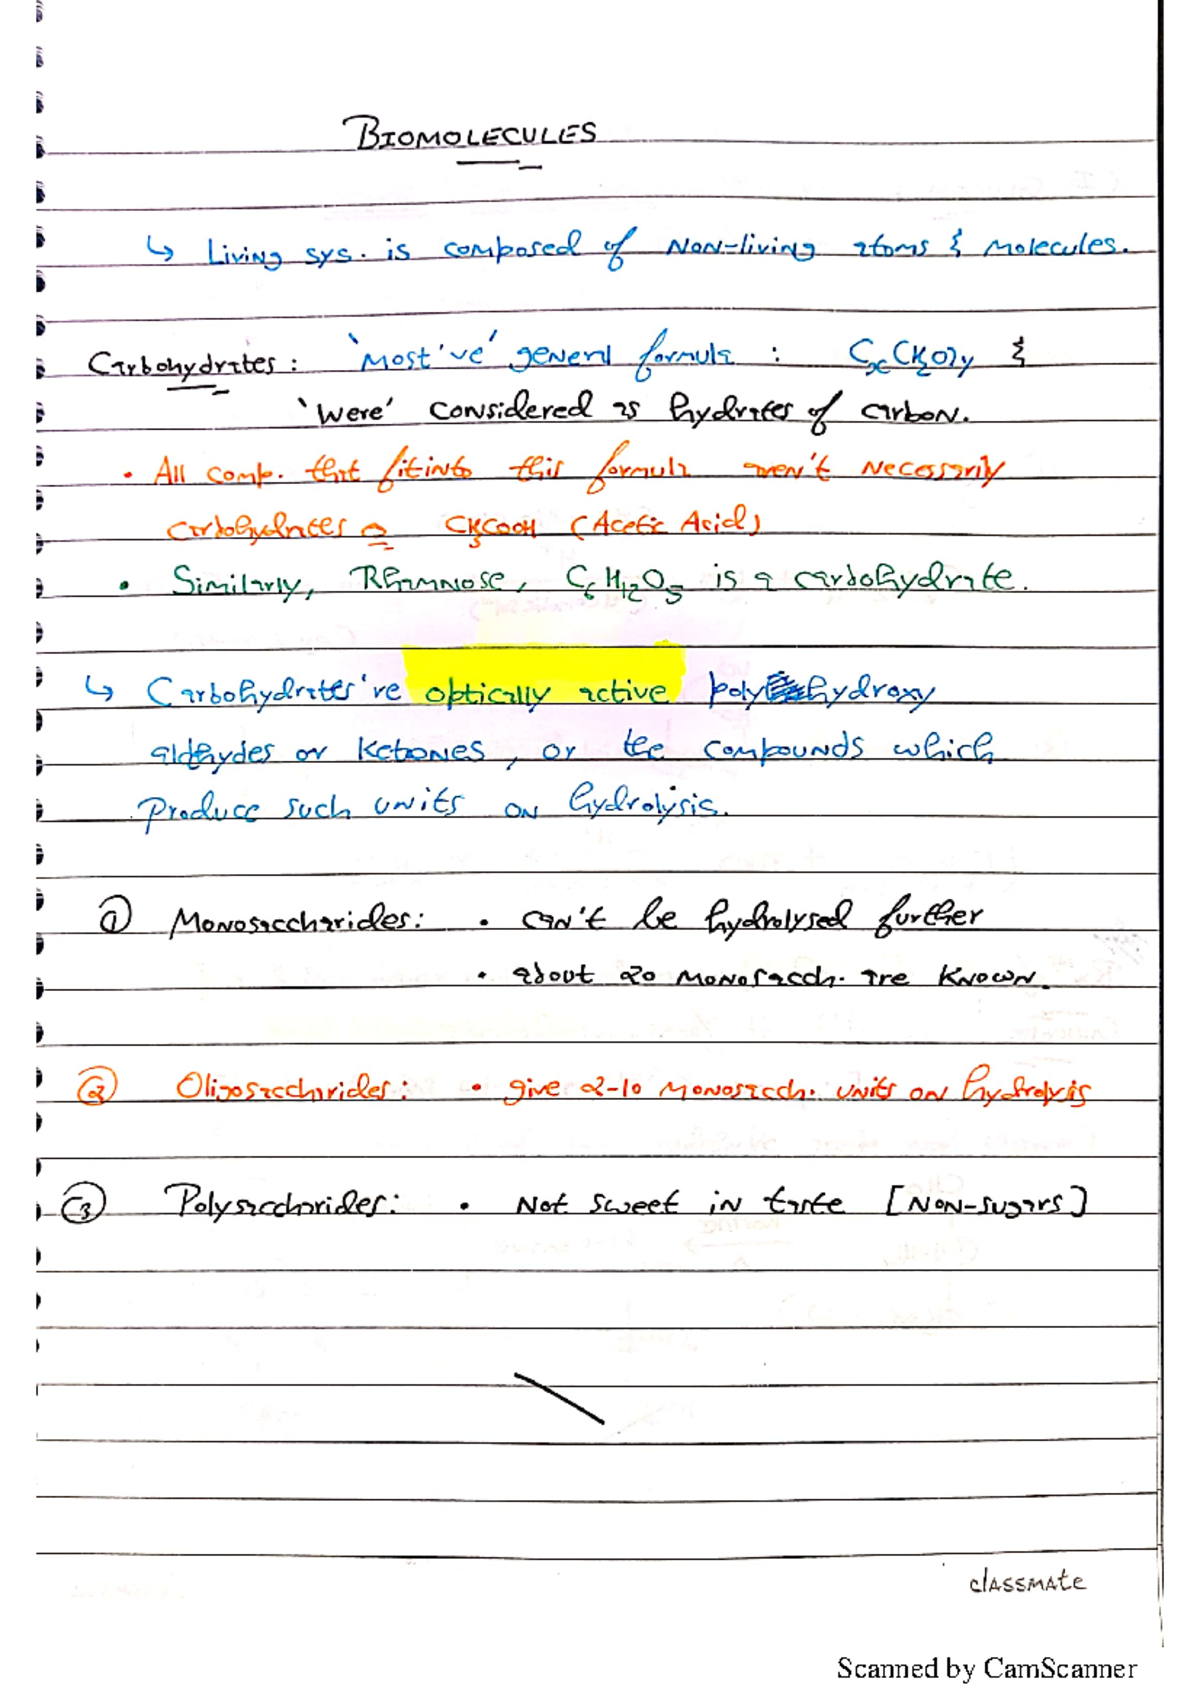 BIOMOLECULES
↳ Living sys. is composed of Non-living atoms & molecules.
Carbohydrates: 'Most've' general formula : Cx(H2O)y &
'were' considered as hydrates of carbon.
• All comp. that fit into this formula aren't necessarily
carbohydrates CH3COOH (Acetic Acid)
• Similarly, Rhamnose, C6H12O5 is a carbohydrate.
↳ Carbohydrates've optically active polyhydroxy
aldehydes or ketones, or the compounds which
produce such units on hydrolysis.
① Monosaccharides: • can't be hydrolysed further
• about 20 monosacch. are known.
② Oligosaccharides: • give 2-10 monosacch. units on hydrolysis
③ Polysaccharides: • Not sweet in taste [Non-sugars]
classmate
Scanned by CamScanner